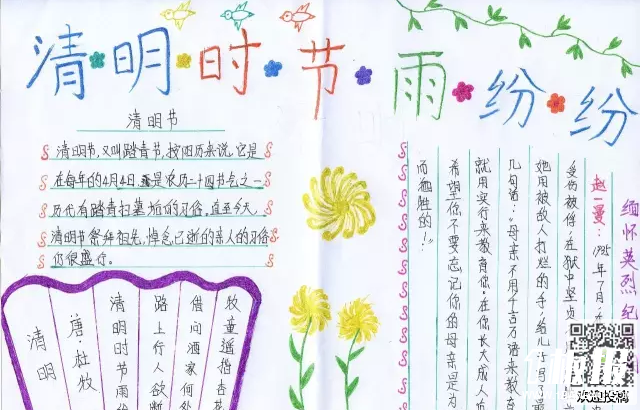 清明时节雨纷纷
清明节
清明节,又叫踏青节,按阳历来说,它是
在每年的4月4日,是农历二十四节气之一
历代有踏青扫墓的习俗,直至今天,
清明节祭拜祖先,悼念已逝的亲人的习俗
仍很盛行。
清明
唐杜牧
清明时节雨
路上行人欲断
借问酒家何处
牧童遥指杏花
缅怀英烈纪
赵一曼:1935年7月,在
受伤被俘,在狱中坚贞
她用被敌人打烂的手,给儿子写了最
几句话:“母亲不用千言万语来教育
就用实行来教育你,在你长大成人
希望你不要忘记你的母亲是为
而牺牲的!”
欢迎投稿